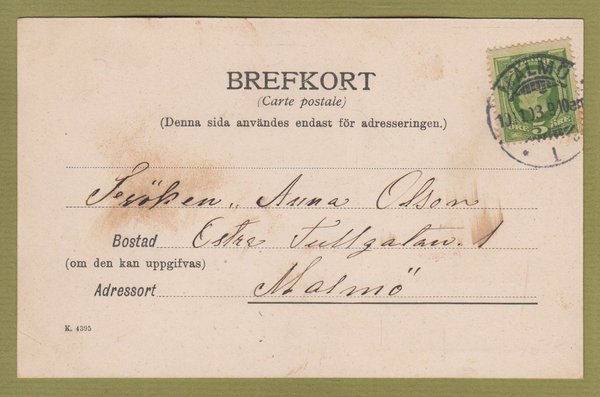 BREFKORT
(Carte postale)
(Denna sida användes endast för adresseringen.)
MALMÖ
1
5
ÖRE
Fröken,, Anna Olson
Bostad Estra Tullgatan. 1
(om den kan uppgifvas)
Adressort Malmö
K. 4395